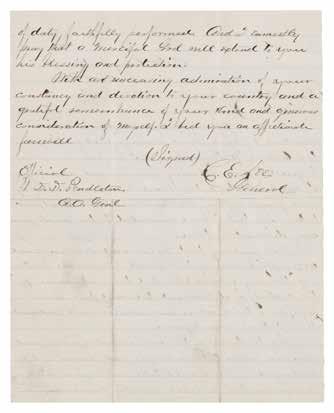 of duty faithfully performed. And I earnestly
pray that a Merciful God will extend to you
his blessing and protection.
With an unceasing admiration of your
constancy and devotion to your country and a
grateful remembrance of your kind and generous
consideration of myself. I bid you an affectionate
farewell
(Signed)
R. E. Lee
General
Official
D. D. Pendleton